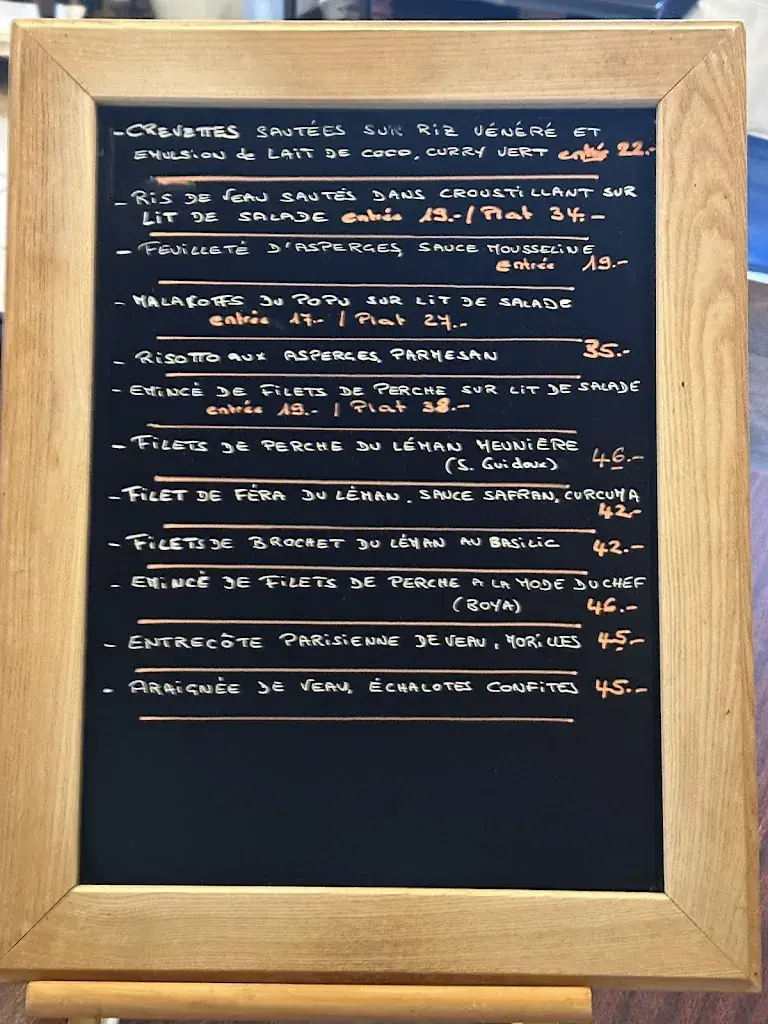 - CREVETTES SAUTÉES SUR RIZ VÉNÉRÉ ET
EMULSION de LAIT DE COCO, CURRY VERT entrée 22.-
- RIS DE VEAU SAUTÉS DANS CROUSTILLANT SUR
LIT DE SALADE entrée 19.- / Plat 34.-
- FEUILLETÉ D'ASPERGES, SAUCE MOUSSELINE
entrée 19.-
- MALAKOFFS DU POPU SUR LIT DE SALADE
entrée 17.- / Plat 27.-
- RISOTTO AUX ASPERGES, PARMESAN 35.-
- EMINCÉ DE FILETS DE PERCHE SUR LIT DE SALADE
entrée 19.- / Plat 38.-
- FILETS DE PERCHE DU LÉMAN MEUNIÈRE 46.-
(S. Guidoux)
- FILET DE FÉRA DU LÉMAN, SAUCE SAFRAN, CURCUMA
42.-
- FILETS DE BROCHET DU LÉMAN AU BASILIC 42.-
- EMINCÉ DE FILETS DE PERCHE A LA MODE DU CHEF
(BOYA) 46.-
- ENTRECÔTE PARISIENNE DE VEAU, MORILLES 45.-
- ARAIGNÉE DE VEAU, ÉCHALOTES CONFITES 45.-